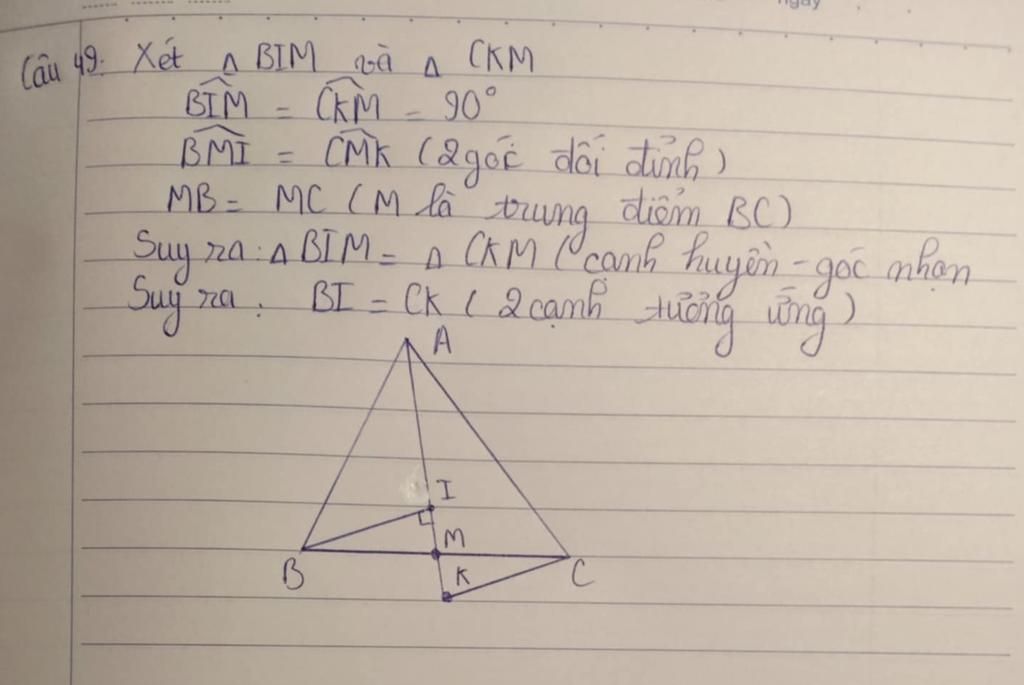 ngày
Câu 49: Xét △ BIM và △ CKM
BIM̂ = CKM̂ = 90°
BMÎ = CMK̂ (2 góc đối đỉnh)
MB = MC (M là trung điểm BC)
Suy ra: △ BIM = △ CKM (cạnh huyền - góc nhọn
Suy ra: BI = CK (2 cạnh tưởng ứng)
A
I
M
B
K
C